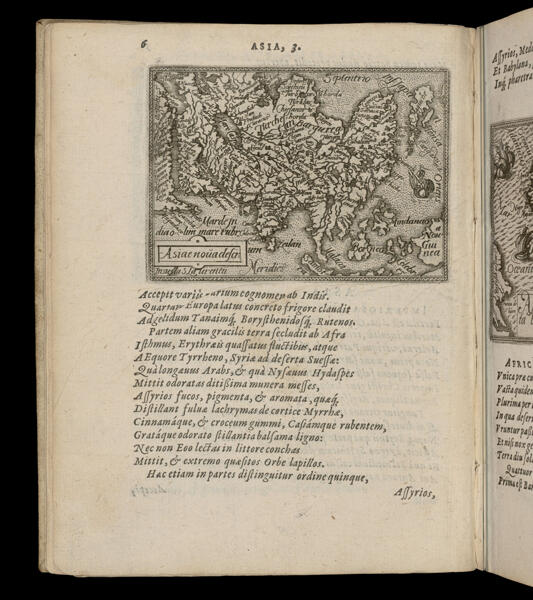 6
ASIA, 3.
Septentrio
Turchestan
Mare de in
dia olim mare rubru
Asiae nova descri
Insulae S. Laurentii
Meridies
Zeilan
Borneo
Mindanao
Nova
Gui
nea
Oriens
Accepit variis varium cognomen ab Indis.
Quartam Europa latus concreto frigore claudit
Ad gelidum Tanaimq́, Borysthenidosq́, Rutenos.
Partem aliam gracilis terra secludit ab Afra
Isthmus, Erythræis quassatus fluctibus, atque
AEquore Tyrrheno, Syria ad deserta Suessæ:
Quà longævus Arabs, & quà Nysæus Hydaspes
Mittit odoratas ditißima munera messes,
Assyrios fucos, pigmenta, & aromata, quæq́,
Distillant fuluæ lachrymas de cortice Myrrhæ,
Cinnamáque, & croceum gummi, Casiámque rubentem,
Gratáque odorato stillantia balsama ligno:
Nec non Eoo lectas in littore conchas
Mittit, & extremo quæsitos Orbe lapillos.
Hæc etiam in partes distinguitur ordine quinque,
Assyrios,
Assyrios, Medo
Et Babylona,
Inq́, pharetra
Oceanu
AFRIC
Vnica præ cu
Vasta quidem
Plurima per
In qua deser
Vruntur pass
Et nisi nox ge
Terra diu sola
Quattuor
Prima est Bar